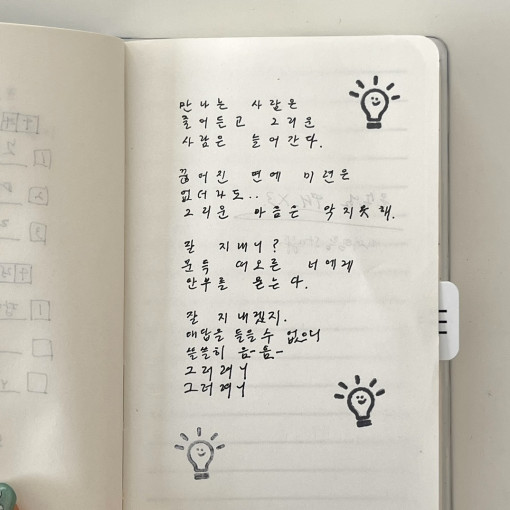 만나는 사람은
줄어든고 그리운
사람은 늘어간다.
끊어진 면에 미련은
없더라도..
그리운 마음은 막지못해.
잘 지내니?
문득 떠오른 너에게
안부를 묻는다.
잘 지내겠지.
대답을 들을 수 없으니
쓸쓸히 음-음-
그러려니
그러려니